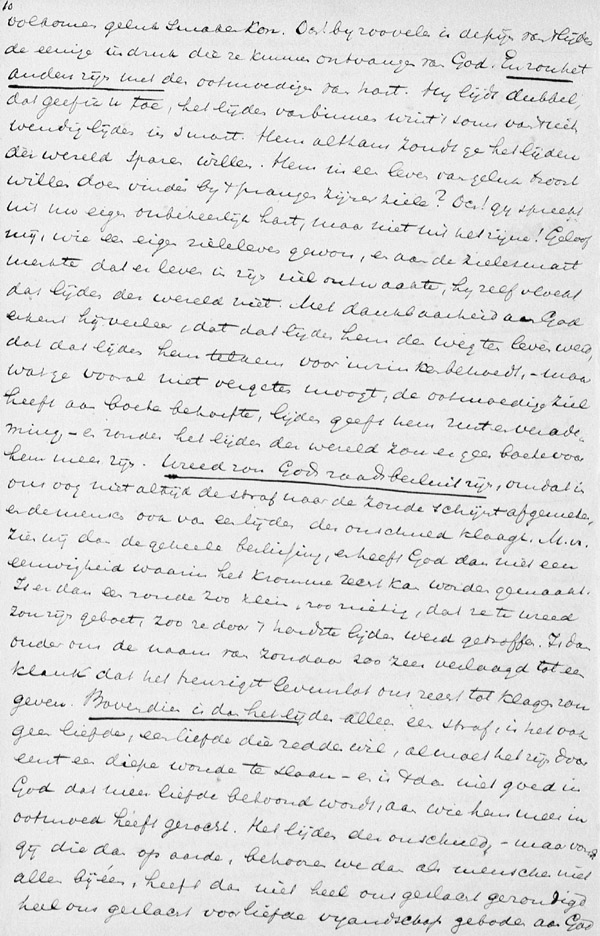 10
volkomen geluk smaken kon. Oost by zoovelen is de pijn van 't lijden
de eenige indruk die ze kunnen ontvangen van God. En zou het
anders zijn met den ootmoedigen van hart. Hy lijdt dubbel,
dat geef ik u toe, het lijden van binnen wint 't soms van 't uit
wendig lijden in smart. Hem althans zoudt ge het lijden
der wereld sparen willen. Hem in een leven van geluk troost
willen doen vinden by 't prangen zijner ziele? Och! gy spreekt
uit uw eigen onbekeerlijk hart, maar niet uit het zijne! Geloof
mij, wie een eigen zieleleven gewon, en aan de zielesmart
merkte dat er leven in zijn ziel ontwaakte, hy zelf vloekt
dat lijden der wereld niet. Met dankbaarheid aan God
erkent hij veeleer, dat dat lijden hem den weg ten leven wees,
dat dat lijden hem telkens voor inzinken behoedt, - maar
wat ge vooral niet vergeten moogt, de ootmoedige ziel
heeft aan boete behoefte, lijden geeft hem rust en verade-
ming - en zonder het lijden der wereld zou er geen boete voor
hem meer zijn. Wreed zou Gods raadsbesluit zijn, omdat in
ons oog niet altijd de straf naar de zonde schijnt afgemeten,
en de mensch ook van een lijden der onschuld klaagt. M. vr.
zien wij dan de geheele beslissing, en heeft God dan niet een
eeuwigheid waarin het kromme recht kan worden gemaakt.
Is er dan een zonde zoo klein, zoo nietig, dat ze te wreed
zou zijn geboet, zoo ze door 't hardste lijden werd getroffen. Is dan
onder ons de naam van zondaar zoo zeer verlaagd tot een
klank dat het treurigst levenslot ons recht tot klagen zou
geven. Bovendien is dan het lijden alleen een straf, is het ook
geen liefde, een liefde die redden wil, al moet het zijn door
eerst een diepe wonde te slaan - en is 't dan niet goed in
God dat meer liefde betoond wordt, aan wie hem meer in
ootmoed heeft gezocht. Het lijden der onschuld, - maar vondt
gij die dan op aarde, behooren we dan als menschen niet
allen bijeen, heeft dan niet heel ons geslacht gezondigd
heel ons geslacht voor liefde vyandschap geboden aan God